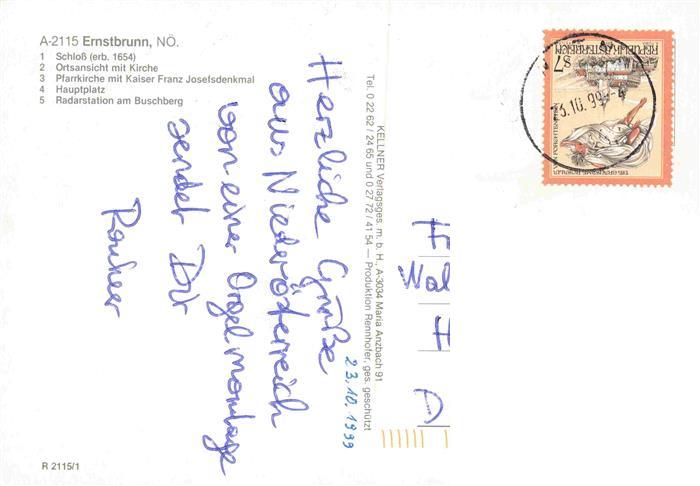 A-2115 Ernstbrunn, NÖ.
1 Schloß (erb. 1654)
2 Ortsansicht mit Kirche
3 Pfarrkirche mit Kaiser Franz Josefsdenkmal
4 Hauptplatz
5 Radarstation am Buschberg
Herzliche Grüße
aus Niederösterreich
von einer Orgelmontage
sendet Dir
23.10.1999
KELLNER Verlagsges. m. b. H., A-3034 Maria Anzbach 91
Tel. 0 22 62 / 24 65 und 0 27 72 / 41 54 — Produktion Rennhofer, ges. geschützt
REPUBLIK ÖSTERREICH
S 7
10.99
Wal
H
D
R 2115/1